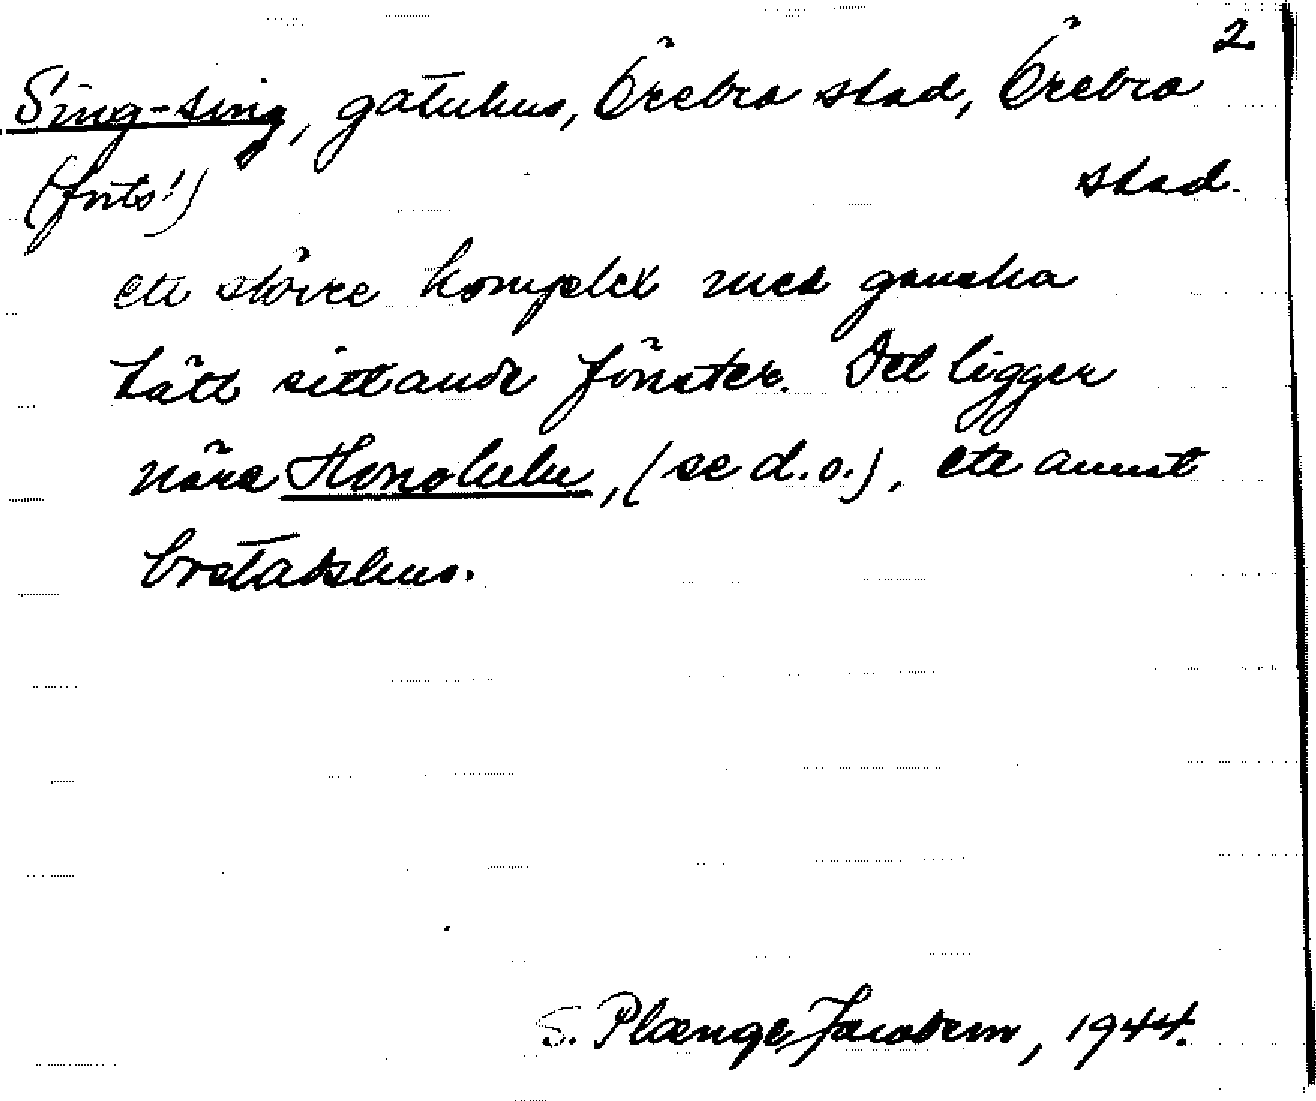 2.
Sing-sing, gatuhus, Örebro stad, Örebro
(forts.) stad.
ett större komplex med ganska
tätt sittande fönster. Det ligger
nära Honolulu, (se d.o.), ett annat
bostadshus.
S. Plænge Jacobson, 1944.